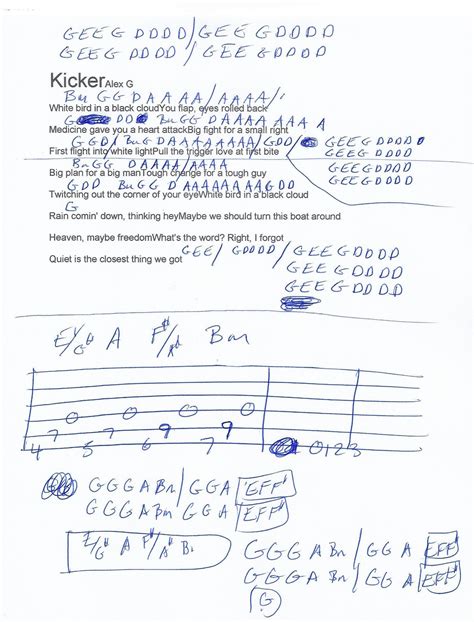 GEEG DDDD/GEE GDDDD
GEEG DDDD / GEE GDDDD
Kicker Alex G
Bm GG DAAAA/AAAA/
White bird in a black cloudYou flap, eyes rolled back
G DD BmGG DAAAA AAA A
Medicine gave you a heart attackBig fight for a small right
GGD/BmGG DAAAAAAA/GDD GEE G DDDD
GEEG DDDD
First flight into white lightPull the trigger love at first bite
BmGG DAAAA/AAAA GEEGDDDD
Big plan for a big manTough change for a tough guy
GDD BmGG DAAAAAAAGDD GEEG DDDD
Twitching out the corner of your eyeWhite bird in a black cloud
G
Rain comin' down, thinking heyMaybe we should turn this boat around
Heaven, maybe freedomWhat's the word? Right, I forgot
GEE/GDDDD/GEEGDDDD
Quiet is the closest thing we got
GEEG DDDD
GEEGDDDD
E/G# A F#/A# Bm
0 0 0 0
7 7 9 9
4 5 6 7 0123
GGGABm/GGA EFF#
GGGABm GGA EFF#
E/G# A F#/A# Bm
GGGABm/GGA EFF#
GGGABm/GGA EFF#
G